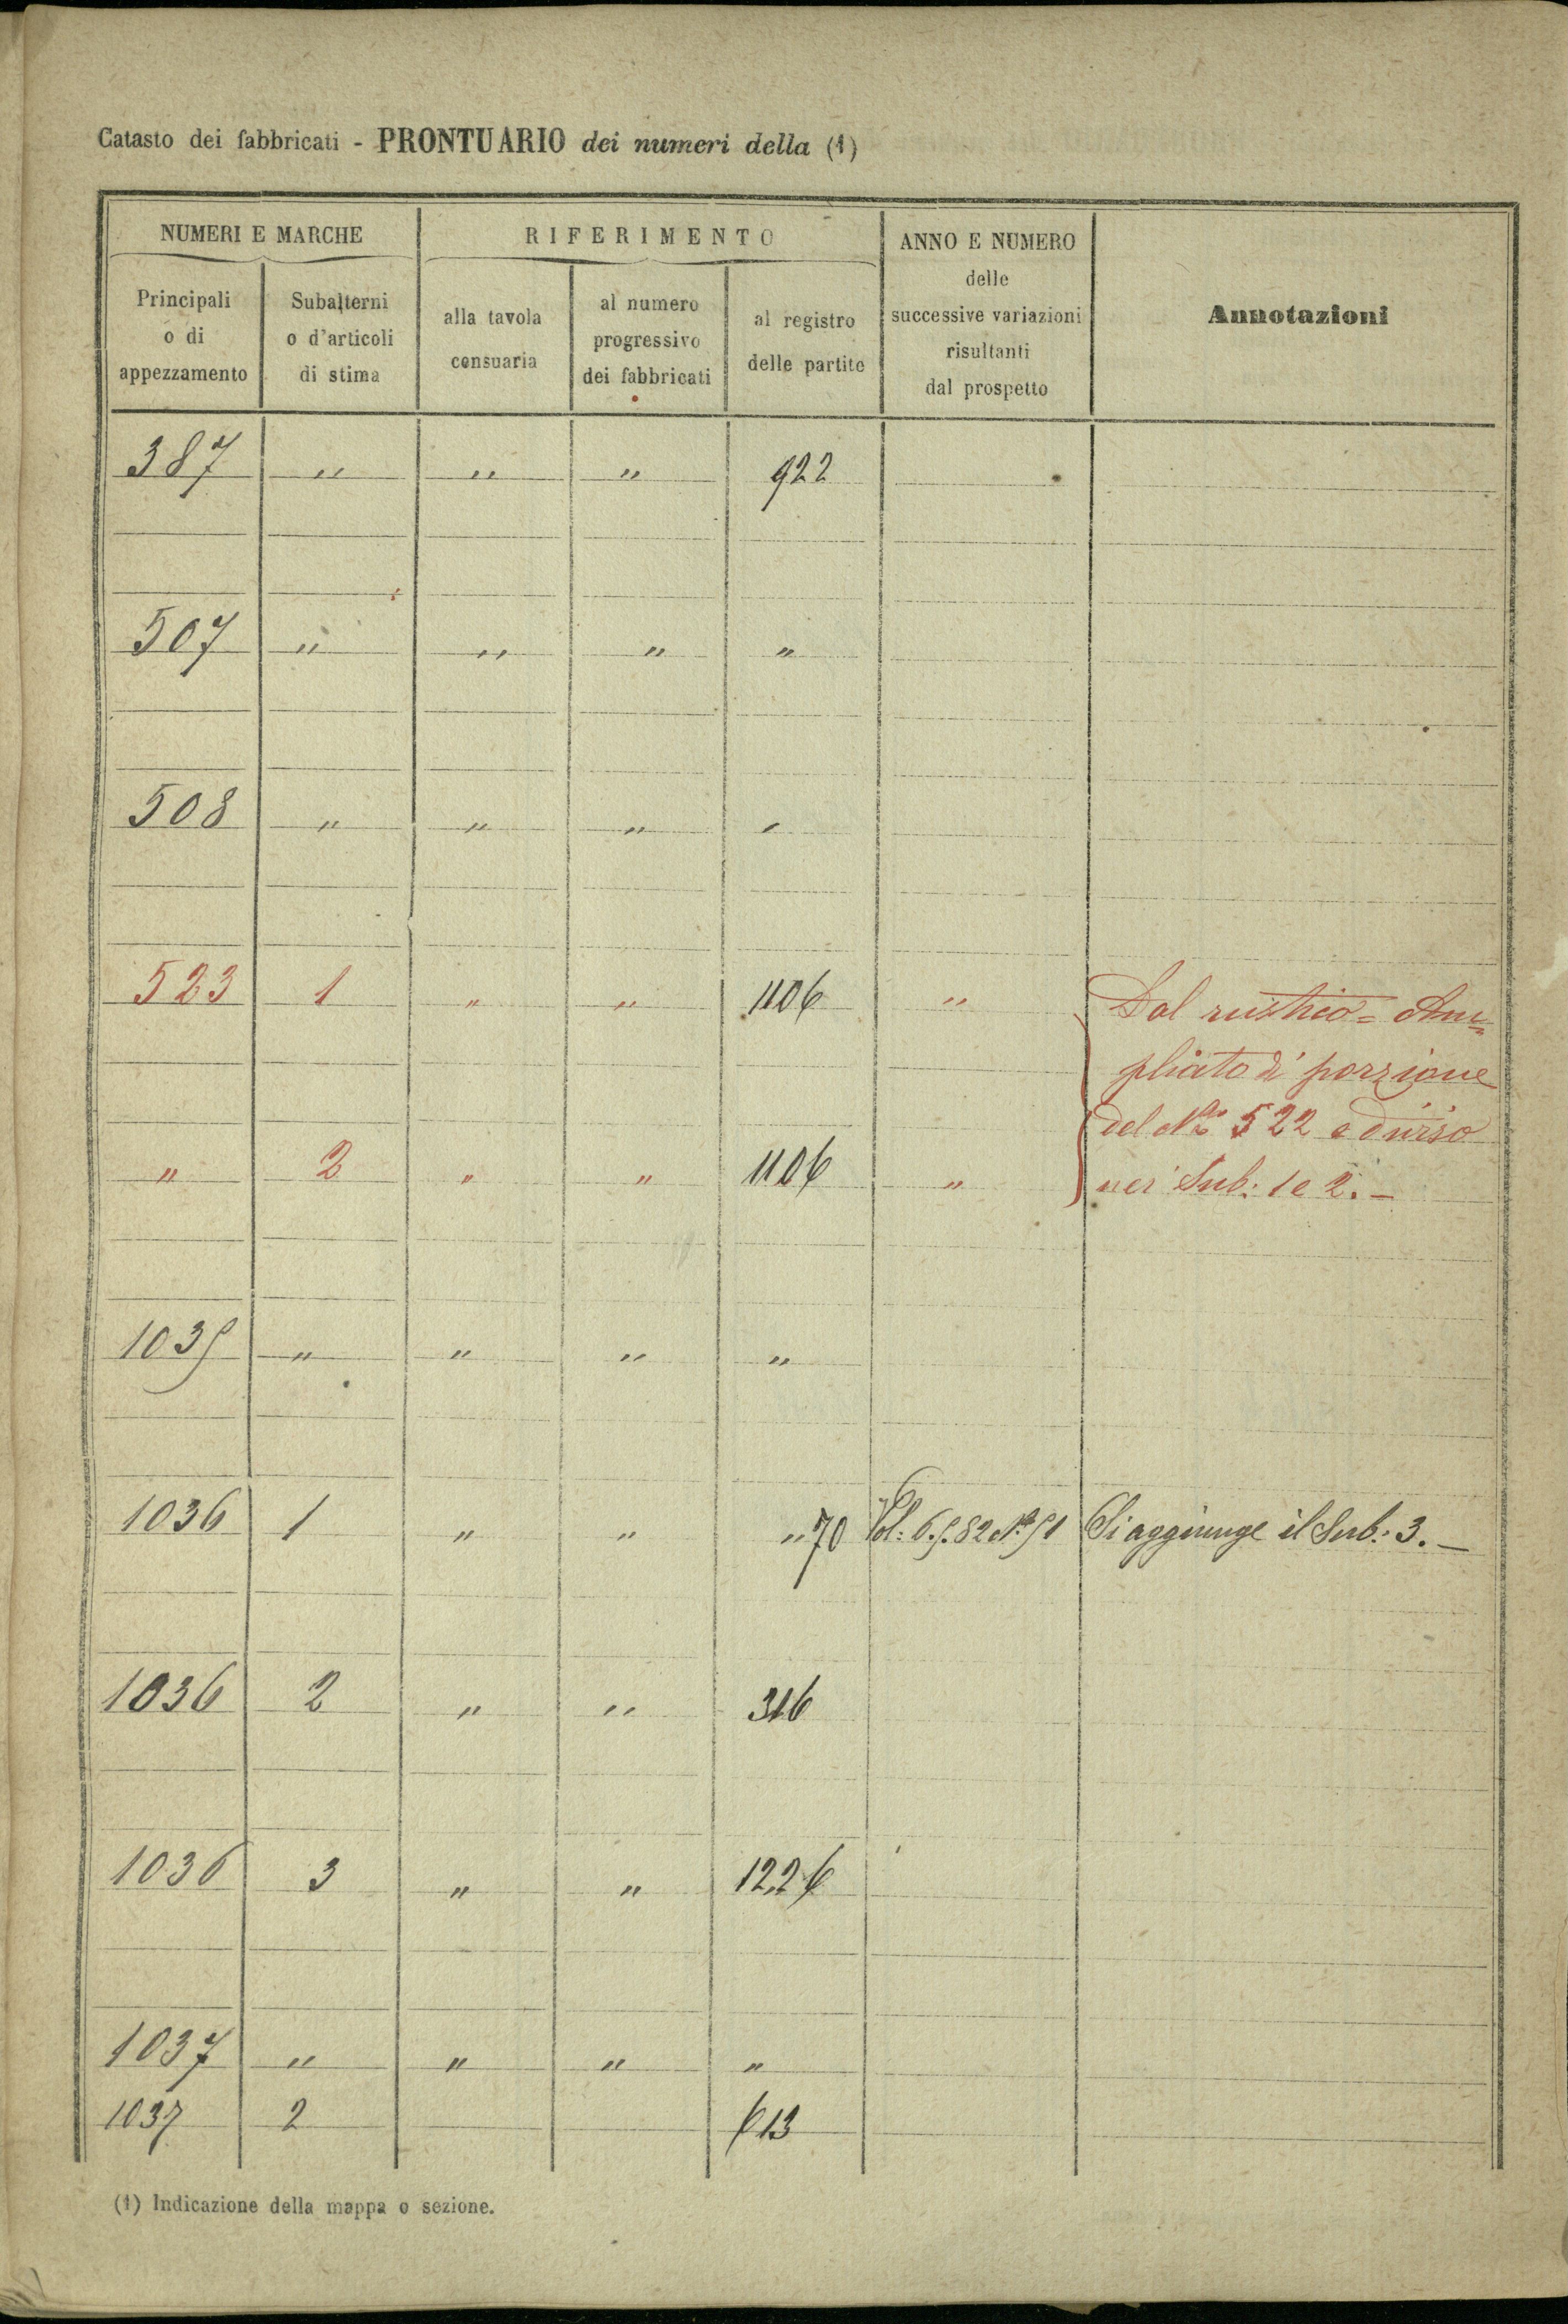 Catasto dei fabbricati - PRONTUARIO dei numeri della (1)
NUMERI E MARCHE
RIFERIMENTO
ANNO E NUMERO
delle
successive variazioni
risultanti
dal prospetto
Annotazioni
Principali
o di
appezzamento
Subalterni
o d'articoli
di stima
alla tavola
censuaria
al numero
progressivo
dei fabbricati
al registro
delle partite
387 " " " 922
507 " " " "
508 " " "
523 1 " " 1106 " Dal rustico = Am=
pliato di porzione
del No 522 e diviso
" 2 " " 1106 " nei Sub: 1 e 2. -
1035 " " " "
1036 1 " " " 70 Vol: 6.5.82 No 51 Si aggiunge il Sub: 3. -
1036 2 " " 316
1036 3 " " 1226
1037 " " " "
1037 2 613
(1) Indicazione della mappa o sezione.